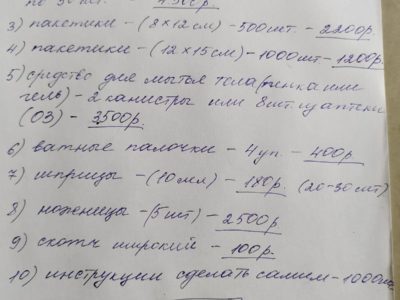 по 50 шт. - 4500р.
3) пакетики - (8×12см) - 500шт. - 2200р.
4) пакетики - (12×15см) - 1000шт - 1200р.
5) средство для мытья тела (пенка или
гель) - 2 канистры или 8шт. из аптеки
(ОЗ) - 3500р.
6) ватные палочки - 4уп. - 400р
7) шприцы - (10мл) - 180р. (20-30шт)
8) ножницы - (5шт) - 2500р
9) скотч широкий - 100р.
10) инструкции сделать самим - 1000шт